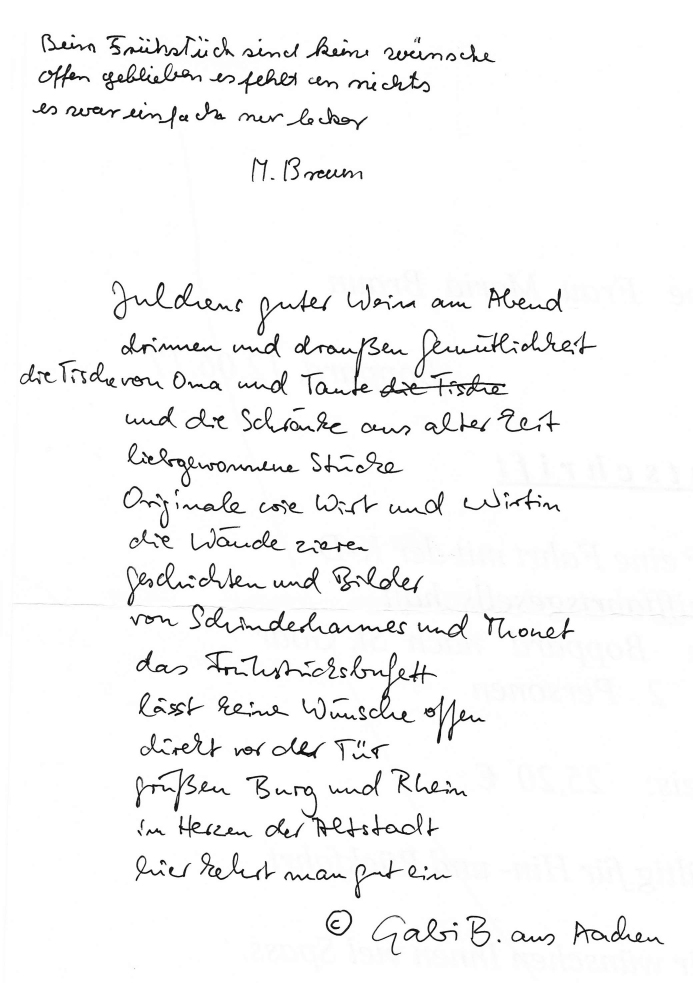 Beim Frühstück sind keine wünsche
offen geblieben es fehlt an nichts
es war einfach nur lecker
M. Braun
guter Wein am Abend
drinnen und draußen Gemütlichkeit
die Tische von Oma und Tante die Tische
und die Schränke aus alter Zeit
liebgewonnene Stücke
Originale wie Wirt und Wirtin
die Wände zieren
geschichten und Bilder
von Schinderhannes und Thonet
das Frühstücksbufett
lässt keine Wünsche offen
direkt vor der Tür
grüßen Burg und Rhein
im Herzen der Altstadt
hier kehrt man gut ein
© Gabi B. aus Aachen